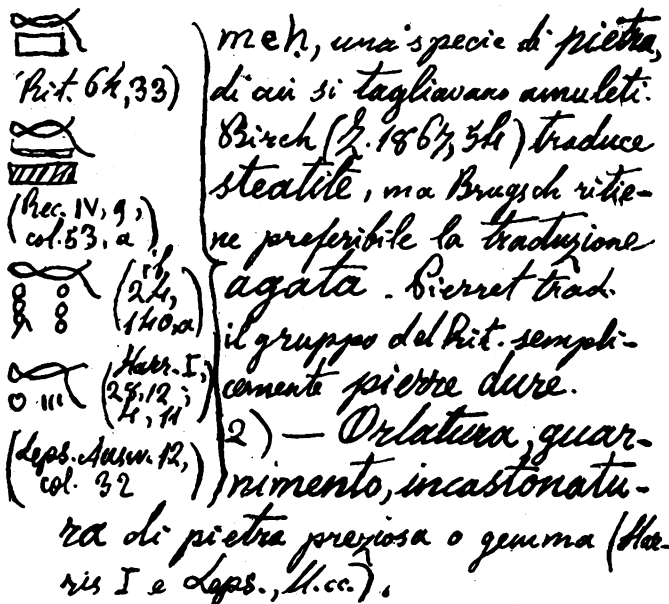 Rit. 64,33)
(Rec. IV, 9,
col. 53, a)
(ib,
24,
140,a)
(Harr. I,
28,12;
4, 11)
(Leps. Ausw. 12,
col. 32)
meh, una specie di pietra,
di cui si tagliavano amuleti.
Birch (Z. 1867, 54) traduce
steatite, ma Brugsch ritie-
ne preferibile la traduzione
agata. Pierret trad.
il gruppo del Rit. sempli-
cemente pierre dure.
2) — Orlatura, guar-
nimento, incastonatu-
ra di pietra preziosa o gemma (Har-
ris I e Leps., ll. cc.).